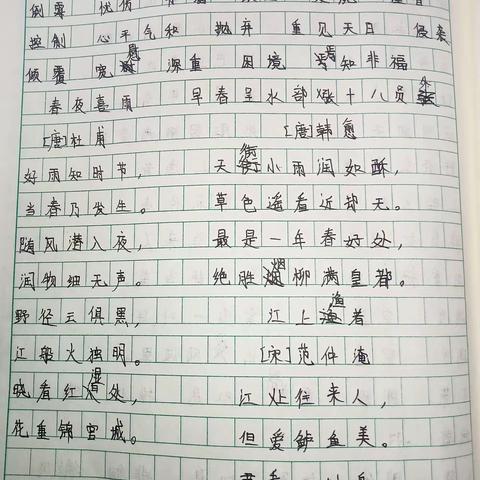 倾覆 忧伤
控制 心平气和 抛弃 重见天日 侵袭
倾覆 宽恕 深重 困境 焉知非福
春夜喜雨
[唐]杜甫
好雨知时节，
当春乃发生。
随风潜入夜，
润物细无声。
野径云俱黑，
江船火独明。
晓看红湿处，
花重锦官城。
早春呈水部张十八员外
[唐]韩愈
天街小雨润如酥，
草色遥看近却无。
最是一年春好处，
绝胜烟柳满皇都。
江上渔者
[宋]范仲淹
江上往来人，
但爱鲈鱼美。